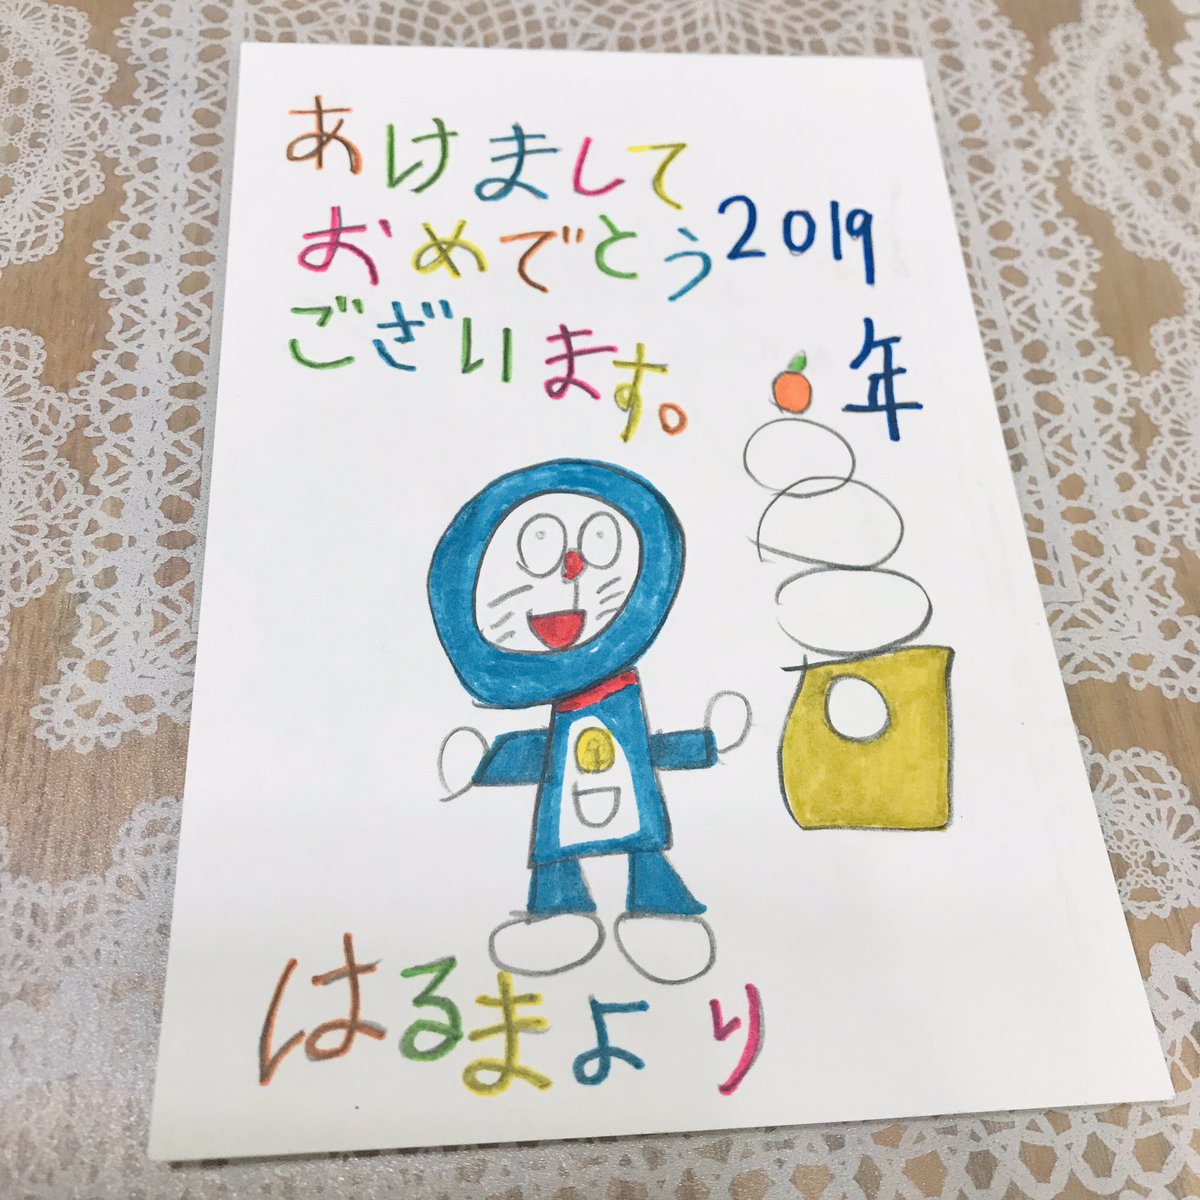 あけまして
おめでとう
ございます。
2019
年
はるまより